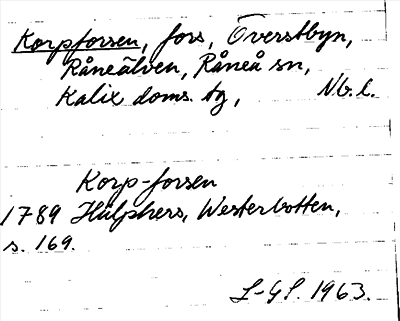 Korpforsen, fors, Överstbyn,
Råneälven, Råneå sn,
Kalix doms. tg, Nb. l.
Korp-forsen
1789 Hülphers, Westerbotten,
s. 169.
L-GS. 1963.